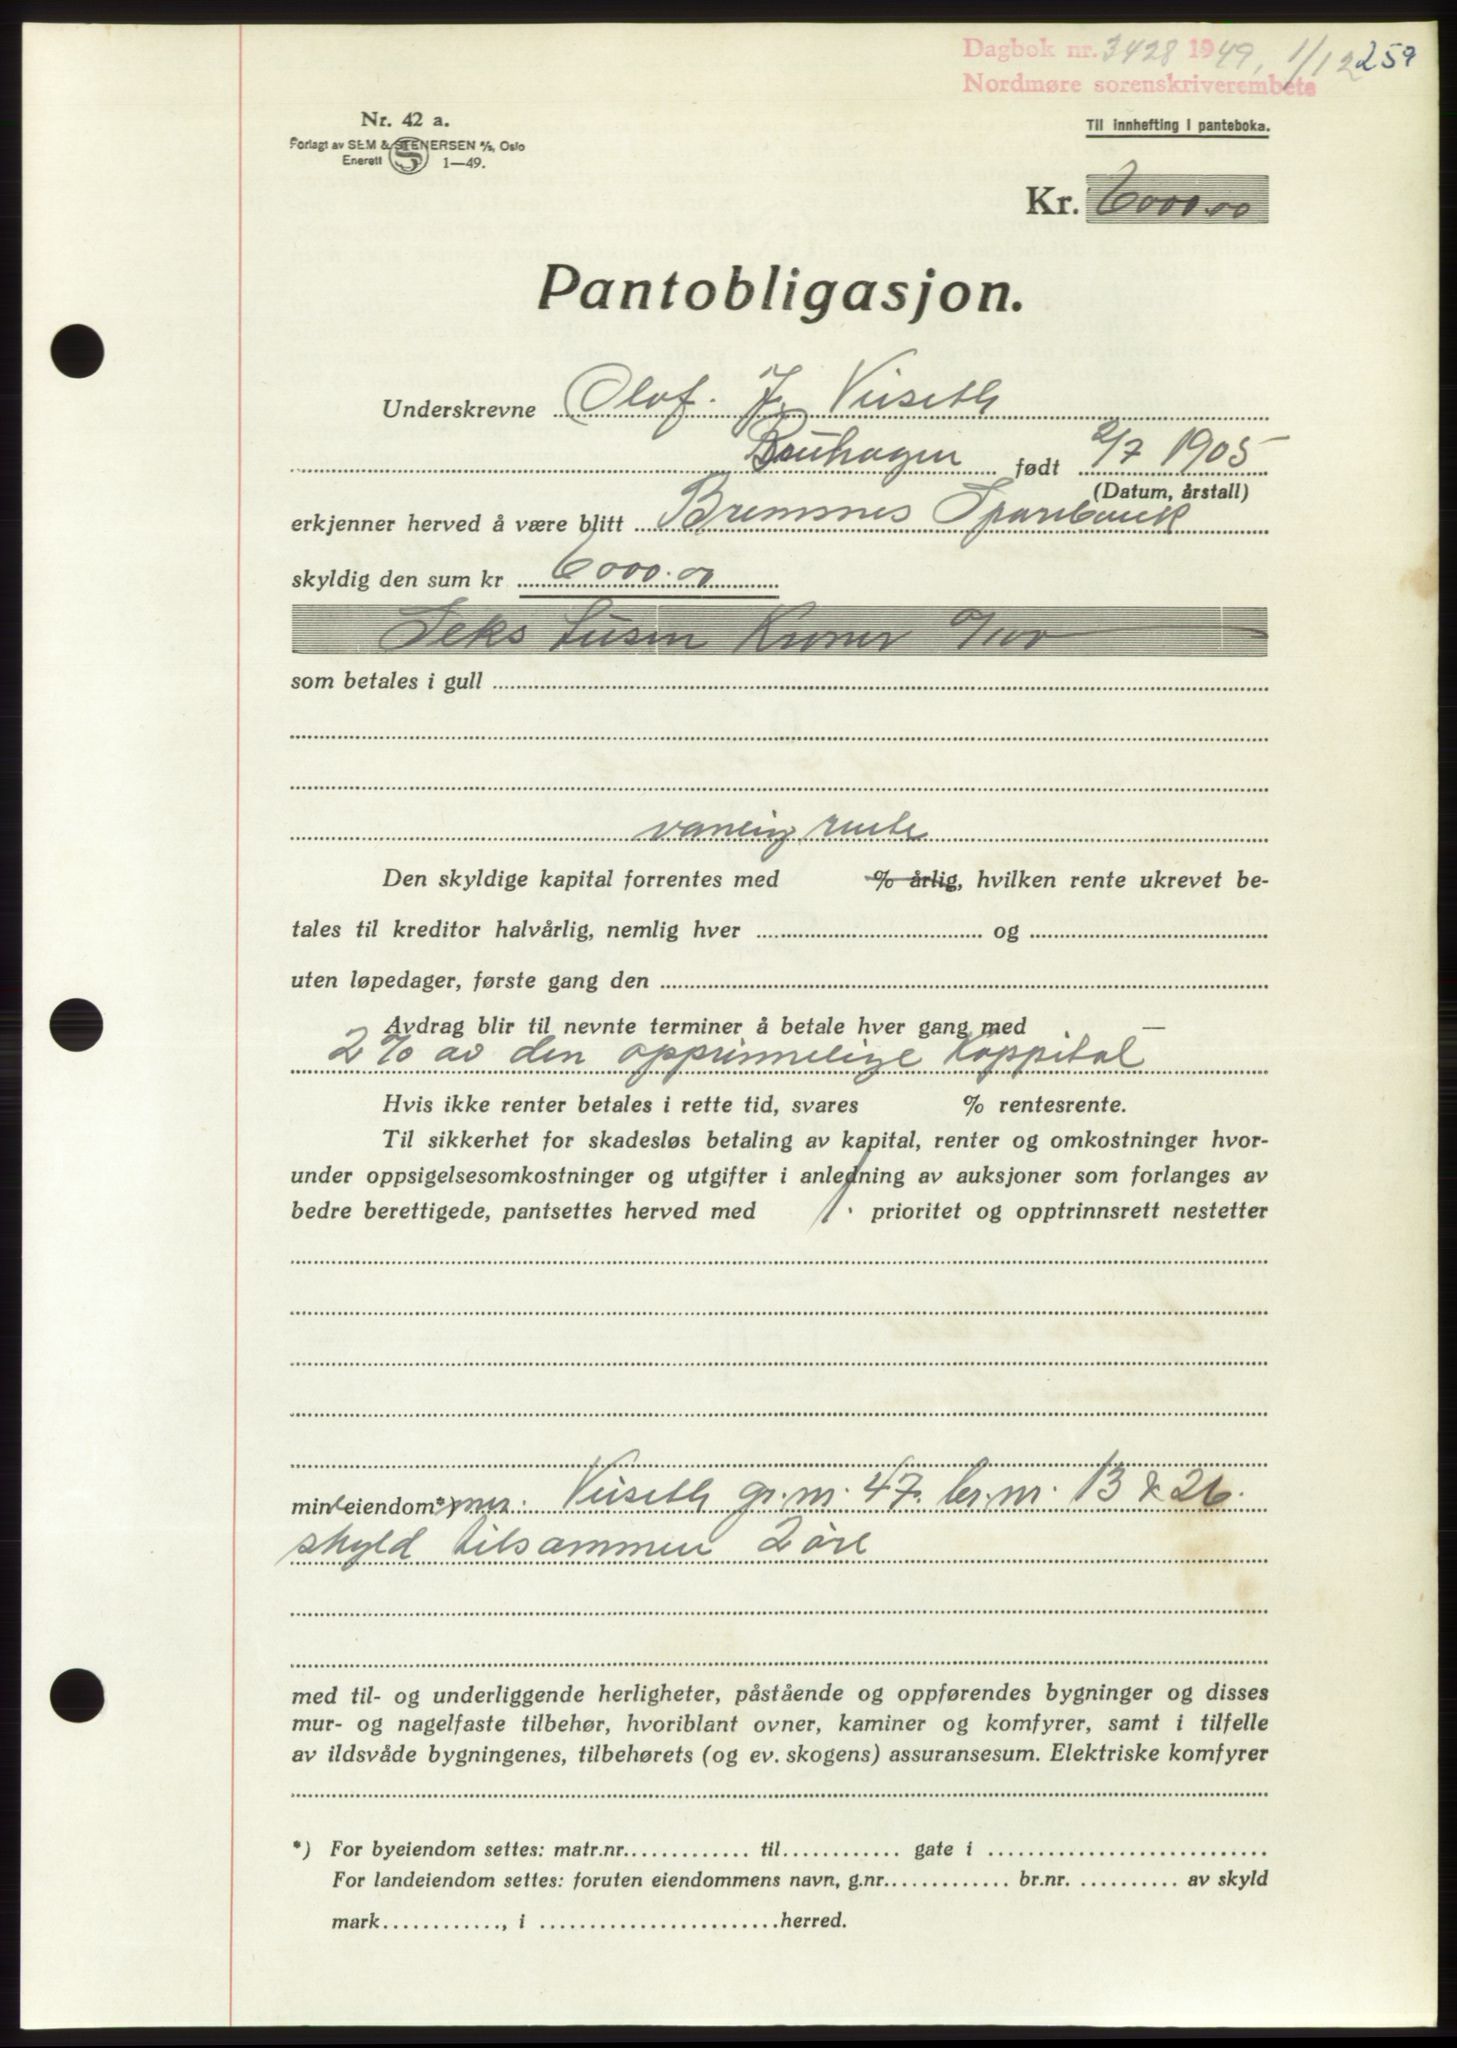 Dagbok nr. 3428 1949, 1/12 259
Nordmøre sorenskriverembete
Nr. 42 a.
Til innhefting i panteboka.
Forlagt av SEM & STENERSEN A/S, Oslo
Enerett S 1—49.
Kr. 6000.00
Pantobligasjon.
Underskrevne Olaf. J. Viseth
Bruhagen født 2/7 1905
(Datum, årstall)
erkjenner herved å være blitt Bremsnes Sparebank
skyldig den sum kr 6000.00
Seks tusen Kroner 0/100
som betales i gull
vanlig rente
Den skyldige kapital forrentes med % årlig, hvilken rente ukrevet be-
tales til kreditor halvårlig, nemlig hver og
uten løpedager, første gang den
Avdrag blir til nevnte terminer å betale hver gang med
2% av den opprinnelige Kappital
Hvis ikke renter betales i rette tid, svares % rentesrente.
Til sikkerhet for skadesløs betaling av kapital, renter og omkostninger hvor-
under oppsigelsesomkostninger og utgifter i anledning av auksjoner som forlanges av
bedre berettigede, pantsettes herved med 1. prioritet og opptrinnsrett nestetter
mine eiendom*) mer. Viseth gr. nr. 47. br. nr. 13 & 26.
skyld tilsammen 2 øre
med til- og underliggende herligheter, påstående og oppførendes bygninger og disses
mur- og nagelfaste tilbehør, hvoriblant ovner, kaminer og komfyrer, samt i tilfelle
av ildsvåde bygningenes, tilbehørets (og ev. skogens) assuransesum. Elektriske komfyrer
*) For byeiendom settes: matr.nr. til gate i
For landeiendom settes: foruten eiendommens navn, g.nr. br.nr. av skyld
mark , i herred.